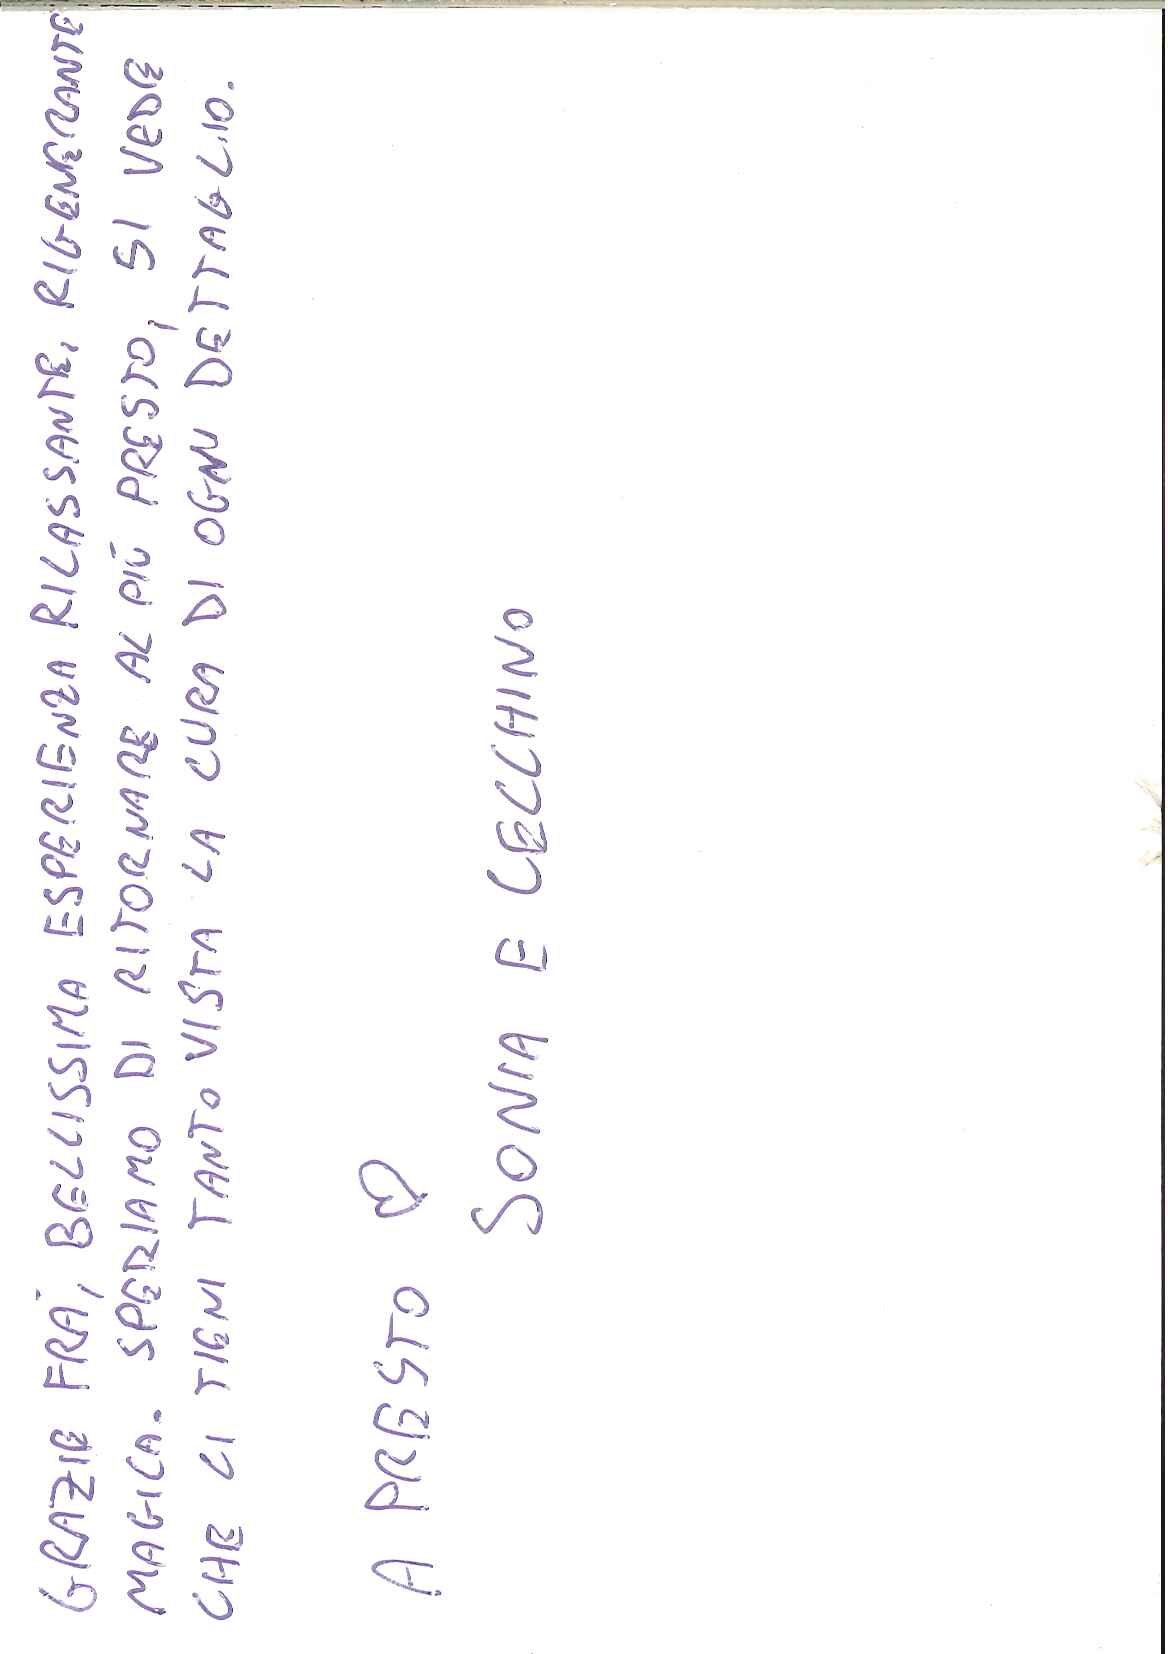 GRAZIE FRÀ, BELLISSIMA ESPERIENZA RILASSANTE, RIGENERANTE
MAGICA. SPERIAMO DI RITORNARE AL PIÙ PRESTO, SI VEDE
CHE CI TIENI TANTO VISTA LA CURA DI OGNI DETTAGLIO.
A PRESTO ♡
SONIA E CECCHINO